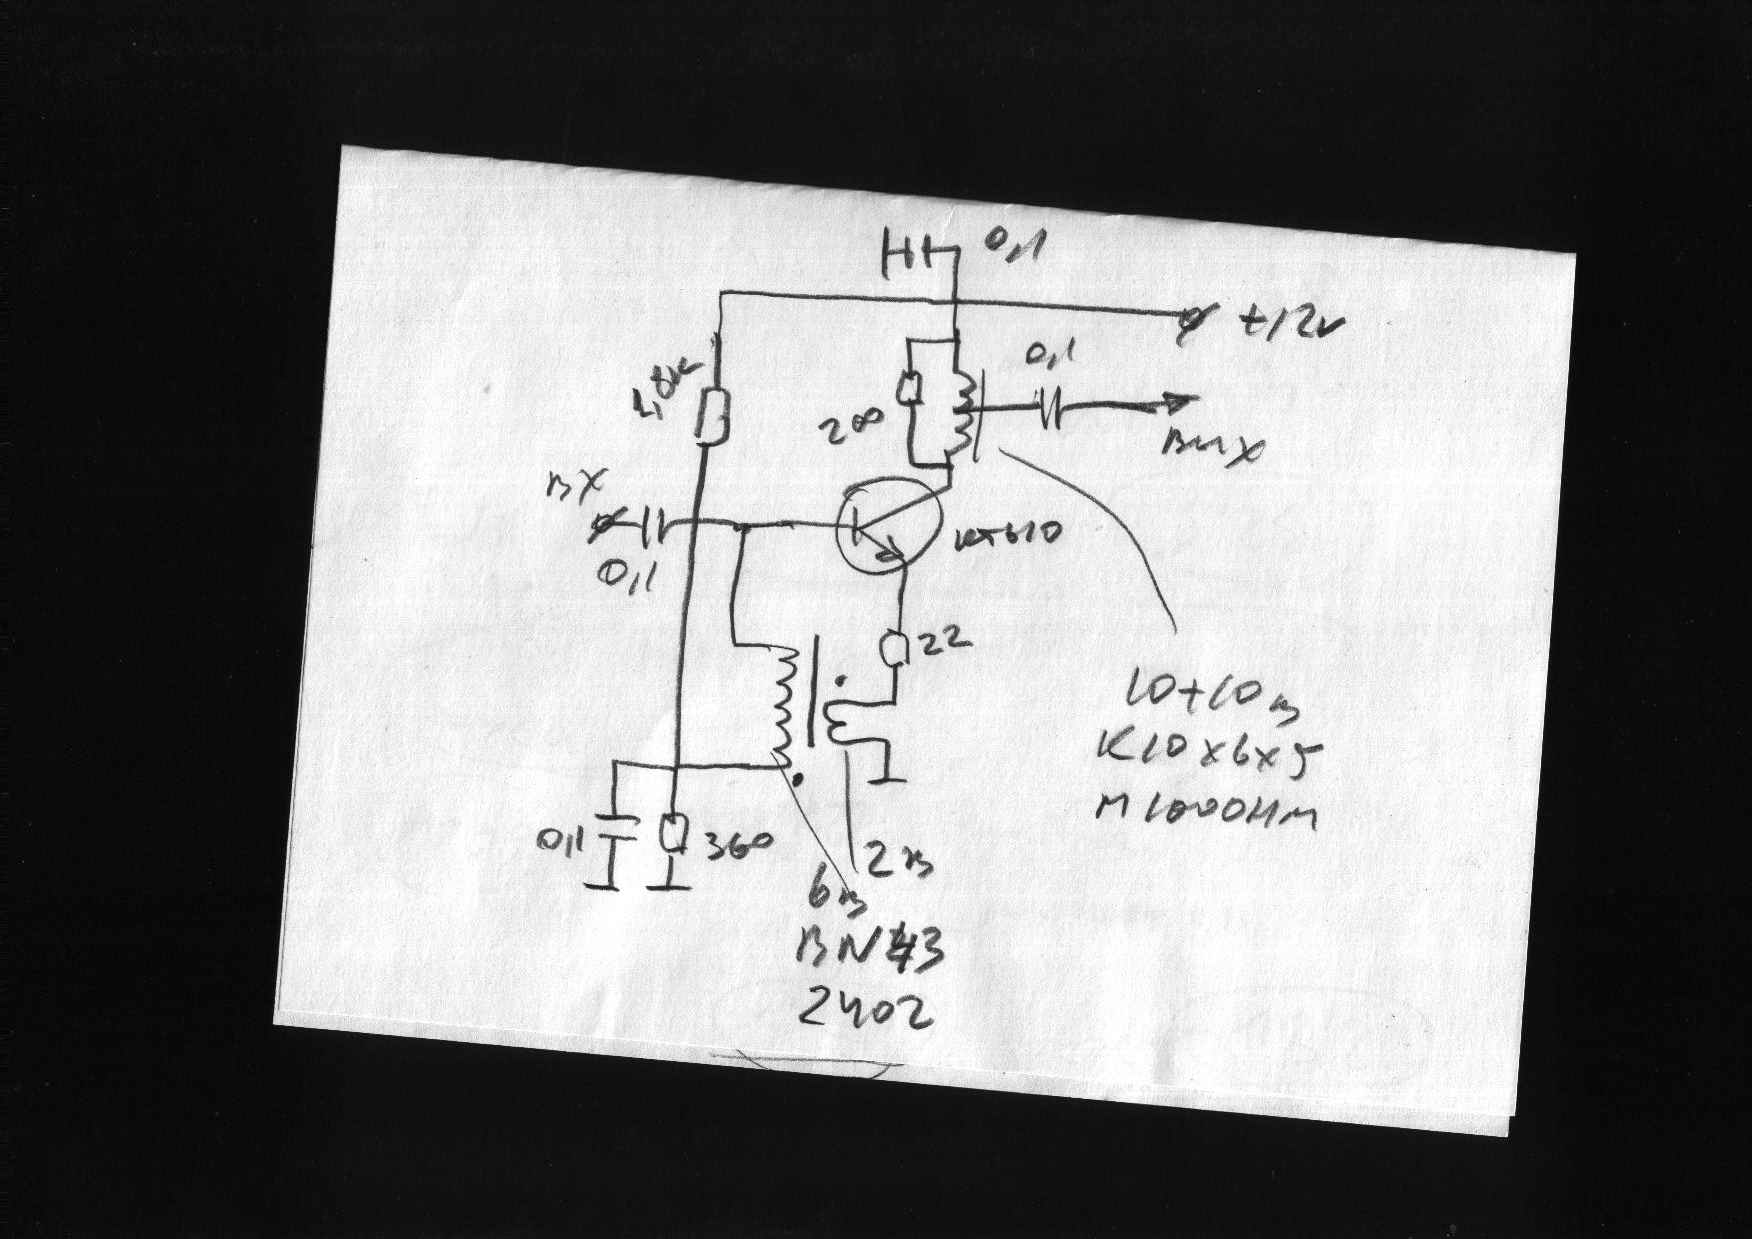 0,1
+12v
0,1
1,8к
200
вых
вх
КТ610
0,1
22
10+10 в
К10х6х5
М1000НМ
0,1
360
2 в
6 в
BN43
2402